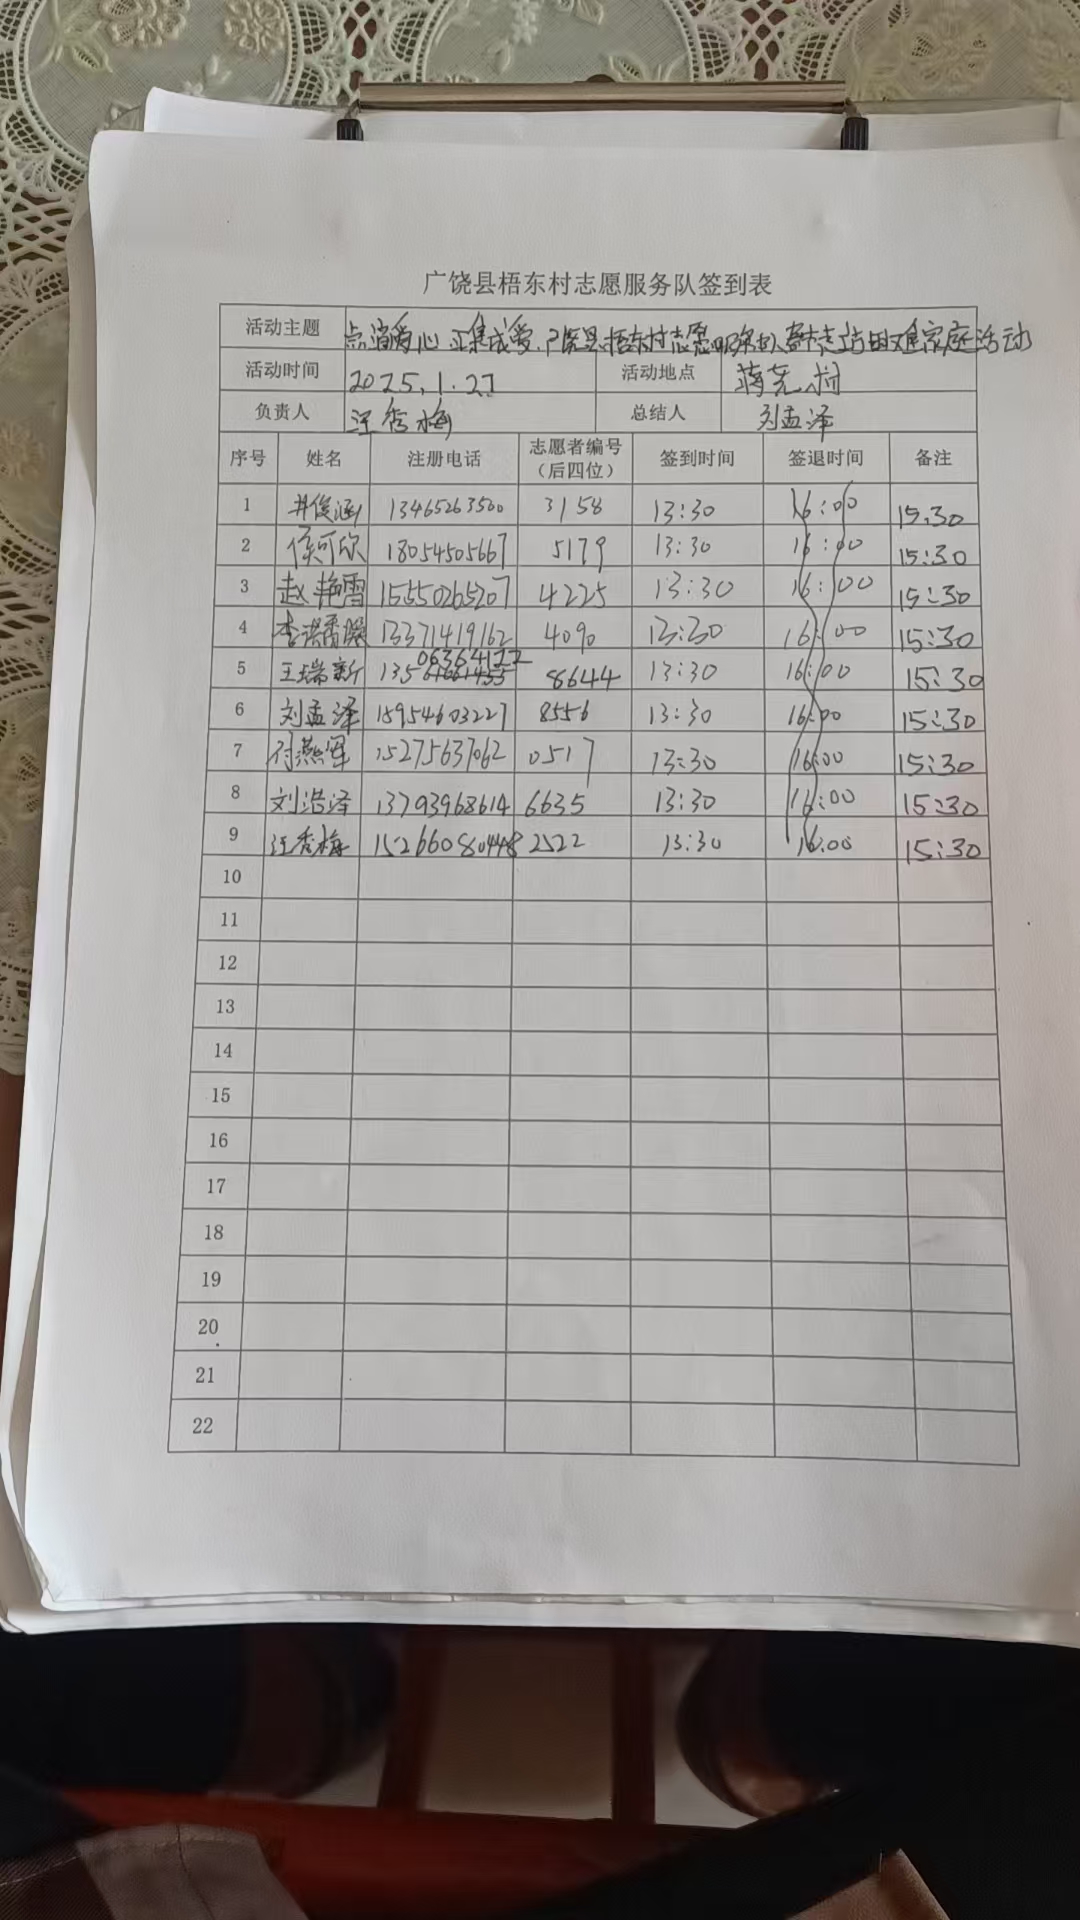 广饶县梧东村志愿服务队签到表
活动主题 点滴爱心 汇集成爱,广饶县梧东村志愿服务队走访困难家庭活动
活动时间 2025.1.27 活动地点
负责人 汪秀梅 总结人 刘孟泽
序号 姓名 注册电话 志愿者编号（后四位） 签到时间 签退时间 备注
1 井俊涵 13465263500 3158 13:30 16:00 15:30
2 侯可欣 18054505667 5179 13:30 16:00 15:30
3 赵艳雪 15550265207 4225 13:30 16:00 15:30
4 13371419162 4090 13:30 16:00 15:30
5 王瑞新 13506364122 8644 13:30 16:00 15:30
6 刘孟泽 15954603227 8556 13:30 16:00 15:30
7 付燕军 15275637062 0517 13:30 16:00 15:30
8 刘浩泽 13793968614 6635 13:30 16:00 15:30
9 汪秀梅 15266080448 2522 13:30 16:00 15:30
10
11
12
13
14
15
16
17
18
19
20
21
22